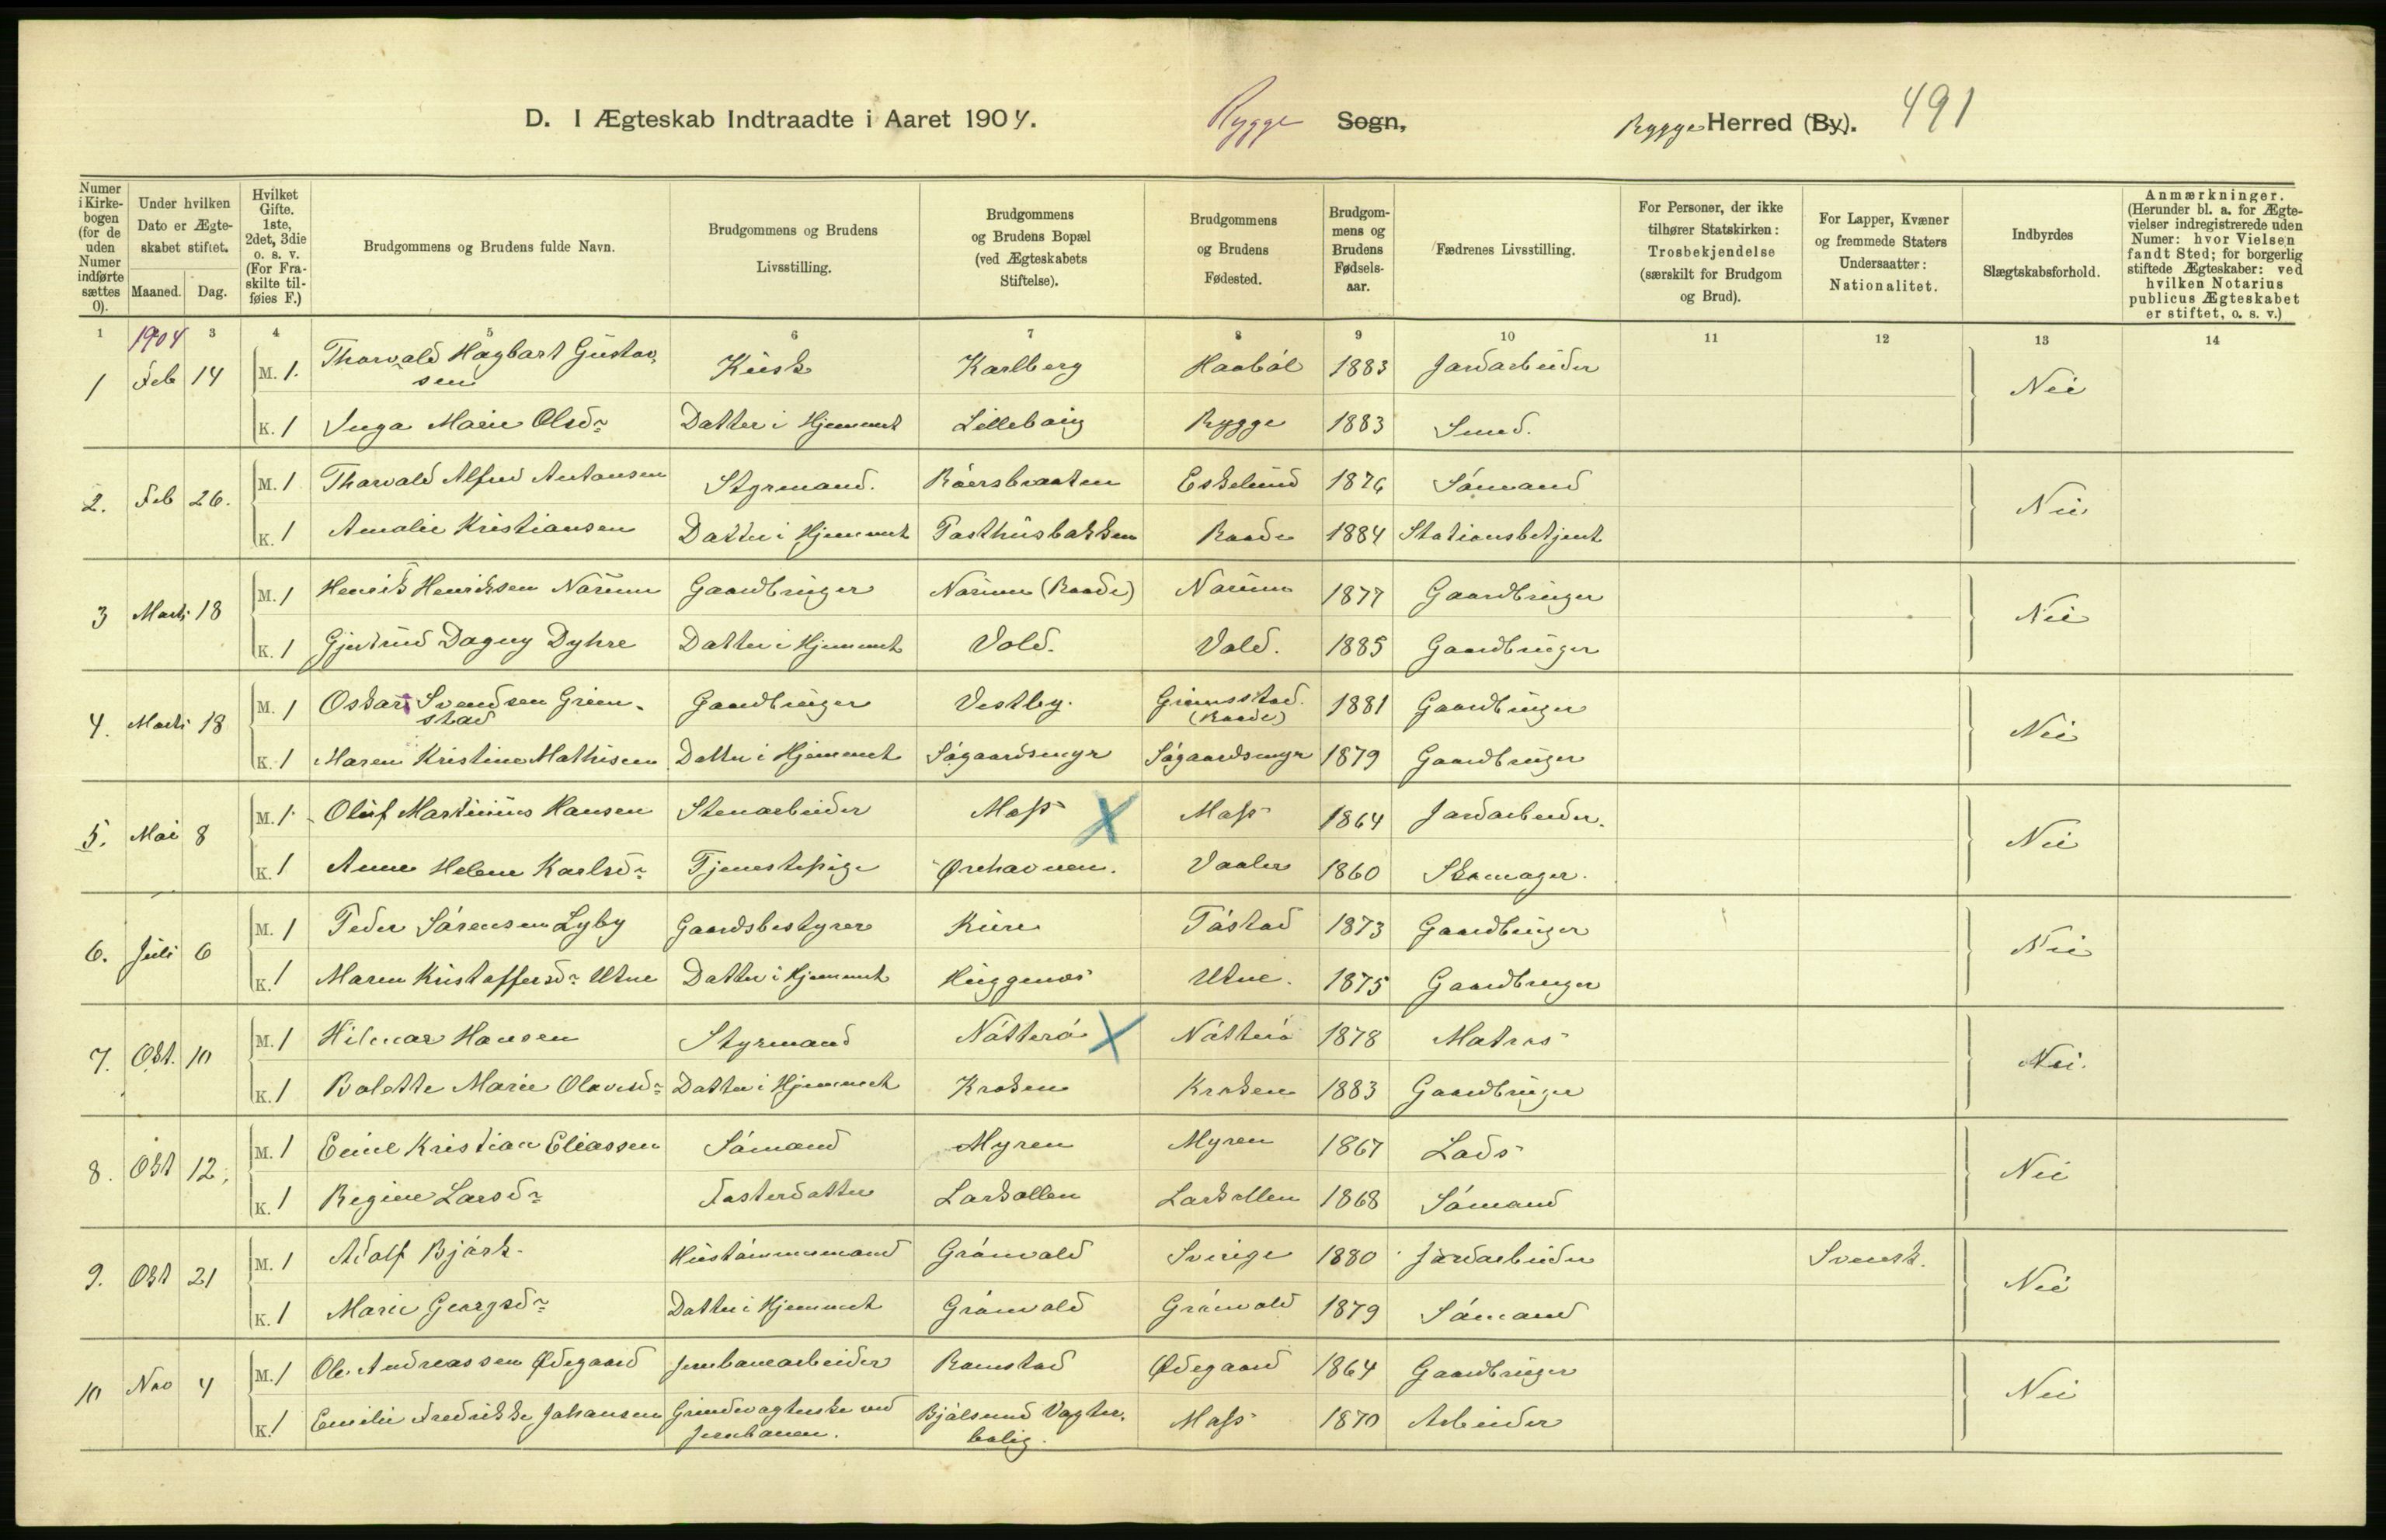 D. I Ægteskab Indtraadte i Aaret 1904. Rygge Sogn, Rygge Herred (By). 491
Numer i Kirkebogen (for de uden Numer indførte sættes 0).
Under hvilken Dato er Ægteskabet stiftet.
Maaned. Dag.
Hvilket Gifte. 1ste, 2det, 3die o. s. v. (For Fraskilte tilføies F.)
Brudgommens og Brudens fulde Navn.
Brudgommens og Brudens Livsstilling.
Brudgommens og Brudens Bopæl (ved Ægteskabets Stiftelse).
Brudgommens og Brudens Fødested.
Brudgommens og Brudens Fødselsaar.
Fædrenes Livsstilling.
For Personer, der ikke tilhører Statskirken: Trosbekjendelse (særskilt for Brudgom og Brud).
For Lapper, Kvæner og fremmede Staters Undersaatter: Nationalitet.
Indbyrdes Slægtskabsforhold.
Anmærkninger. (Herunder bl. a. for Ægtevielser indregistrerede uden Numer: hvor Vielsen fandt Sted; for borgerlig stiftede Ægteskaber: ved hvilken Notarius publicus Ægteskabet er stiftet, o. s. v.)
1 3 4 5 6 7 8 9 10 11 12 13 14
1904
1 Feb 14 M. 1. Thorvald Hagbart Gustavsen Kusk Karlberg Haabøl 1883 Jordarbeider Nei
K. 1 Inga Marie Olsdr Datter i Hjemmet Lillebaug Rygge 1883 Smed.
2. Feb 26. M. 1 Thorvald Alfred Antonsen Styrmand. Roersbraaten Eskelund 1876 Sömand Nei
K. 1 Amalie Kristiansen Datter i Hjemmet Posthusbakken Raade 1884 Stationsbetjent
3 Marts 18 M. 1 Henrik Henriksen Norum Gaardbruger Norum (Raade) Norum 1877 Gaardbruger Nei
K. 1 Gjertrud Dagny Dyhre Datter i Hjemmet Vold. Vold. 1885 Gaardbruger
4. Marts 18 M. 1 Oskar Svendsen Grimstad Gaardbruger Vestby. Grimsstad. (Raade) 1881 Gaardbruger Nei
K. 1 Maren Kristine Mathisen Datter i Hjemmet Sögaardsmyr Sögaardsmyr 1879 Gaardbruger
5. Mai 8 M. 1 Oluf Martinius Hansen Stenarbeider Moss X Moss 1864 Jordarbeider. Nei
K. 1 Anne Helene Karlsdr Tjenestepige Ørehavnen. Vaaler 1860 Skomager.
6. Juli 6 M. 1 Peder Sörensen Lyby Gaardsbestyrer Kure Töstad 1873 Gaardbruger Nei
K. 1 Maren Kristoffersdr Utne Datter i Hjemmet Huggenes Utne. 1875 Gaardbruger
7. Okt. 10 M. 1 Hilmar Hansen Styrmand Nötterö X Nötterö 1878 Matros Nei.
K. 1 Bolette Marie Olavesdr Datter i Hjemmet Kroken Kroken 1883 Gaardbruger
8. Okt 12. M. 1 Emil Kristian Eliassen Sömand Myren Myren 1867 Lods Nei
K. 1 Regine Larsdr Fosterdatter Larkollen Larkollen 1868 Sömand
9. Okt 21 M. 1 Adolf Björk Hustömmermand Grönvold Sverige 1880 Jordarbeider Svensk. Nei
K. 1 Marie Georgsdr Datter i Hjemmet Grönvold Grönvold 1879 Sömand
10 Nov 4 M. 1 Ole Andreassen Ødegaard Jernbanearbeider Ramstad Ødegaard 1864 Gaardbruger Nei
K. 1 Emilie Fredrikke Johansen Grindevogterske ved Jernbanen. Bjölsund Vogterbolig. Moss 1870 Arbeider